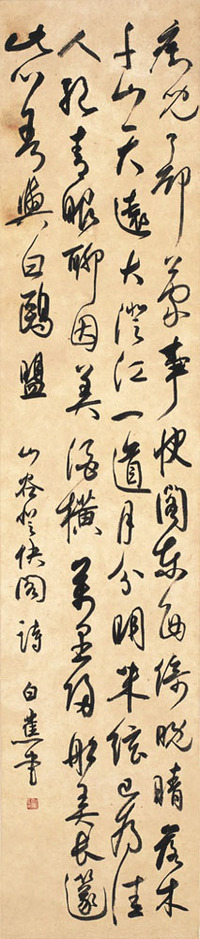 癡兒了却公家事快閣東西倚晚晴落木
千山天遠大澄江一道月分明朱弦已為佳
人絕青眼聊因美酒橫萬里歸船弄長篴
此心吾與白鷗盟 山谷登快閣詩 白蕉書